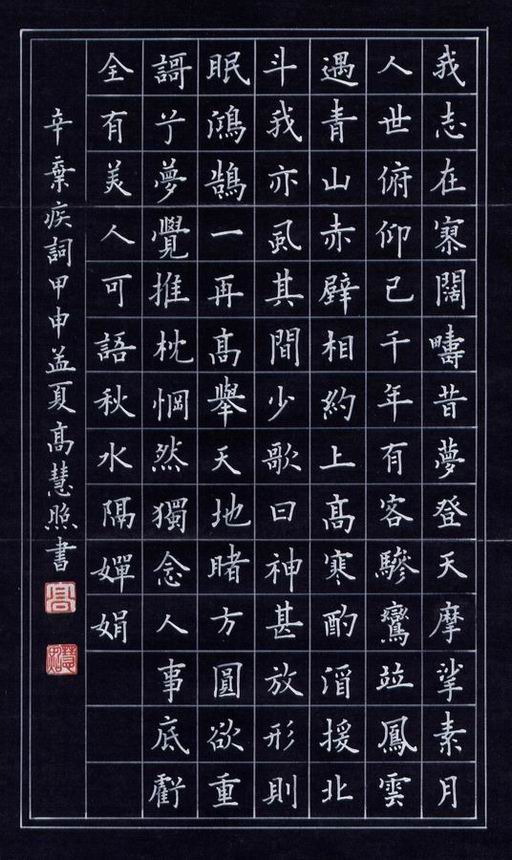 我志在寥闊疇昔夢登天摩挲素月
人世俯仰已千年有客驂鸞竝鳳雲
遇青山赤壁相約上高寒酌酒援北
斗我亦虱其間少歌曰神甚放形則
眠鴻鵠一再高舉天地睹方圓欲重
謌兮夢覺推枕惘然獨念人事底虧
全有美人可語秋水隔嬋娟
辛棄疾詞甲申益夏高慧照書
高